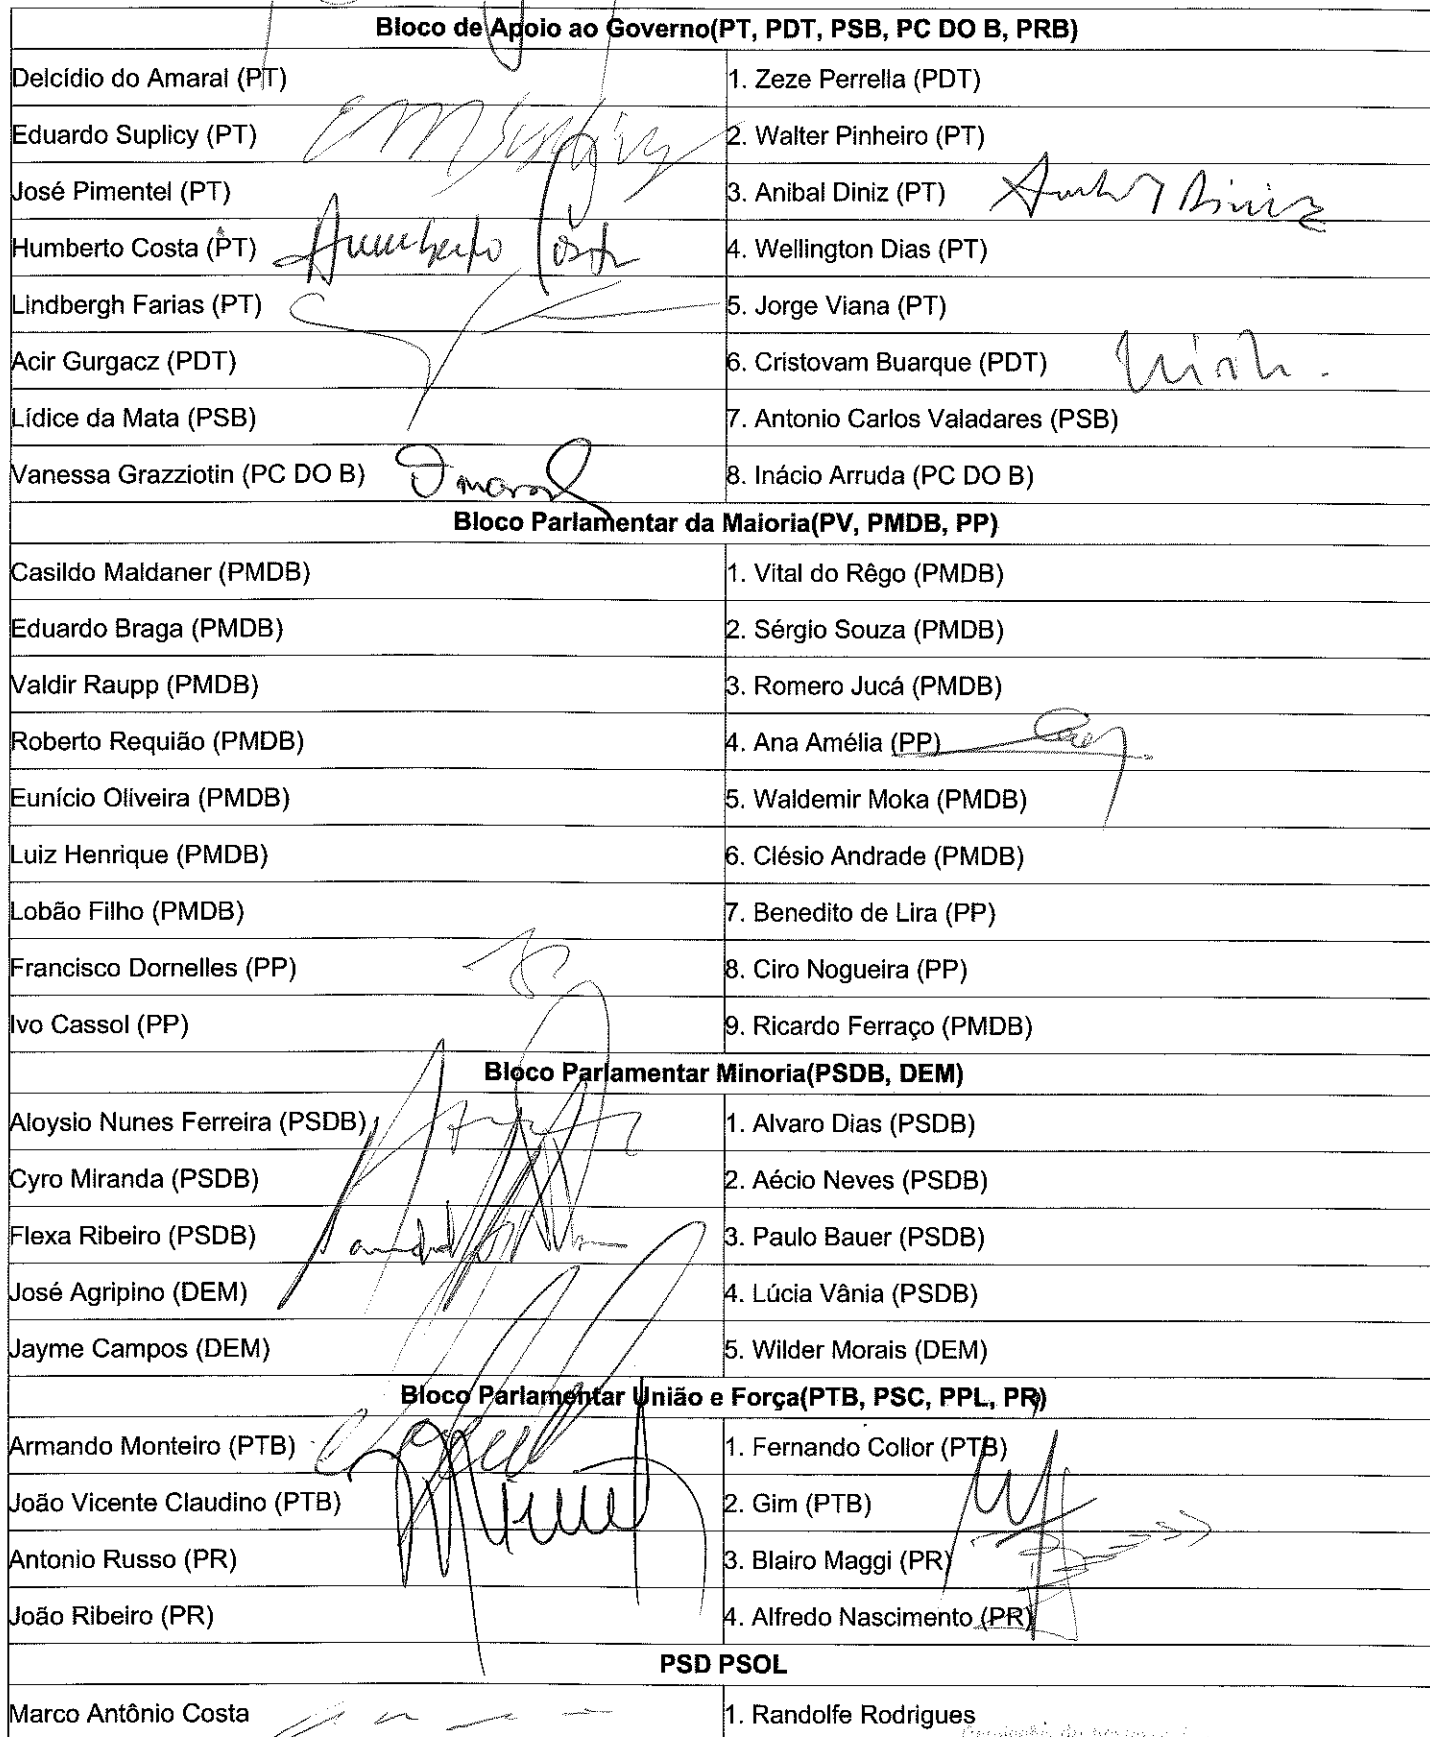 Bloco de Apoio ao Governo(PT, PDT, PSB, PC DO B, PRB)
Delcídio do Amaral (PT) 1. Zeze Perrella (PDT)
Eduardo Suplicy (PT) EM Suplicy 2. Walter Pinheiro (PT)
José Pimentel (PT) 3. Anibal Diniz (PT) Anibal Diniz
Humberto Costa (PT) Humberto Costa 4. Wellington Dias (PT)
Lindbergh Farias (PT) 5. Jorge Viana (PT)
Acir Gurgacz (PDT) 6. Cristovam Buarque (PDT)
Lídice da Mata (PSB) 7. Antonio Carlos Valadares (PSB)
Vanessa Grazziotin (PC DO B) 8. Inácio Arruda (PC DO B)
Bloco Parlamentar da Maioria(PV, PMDB, PP)
Casildo Maldaner (PMDB) 1. Vital do Rêgo (PMDB)
Eduardo Braga (PMDB) 2. Sérgio Souza (PMDB)
Valdir Raupp (PMDB) 3. Romero Jucá (PMDB)
Roberto Requião (PMDB) 4. Ana Amélia (PP)
Eunício Oliveira (PMDB) 5. Waldemir Moka (PMDB)
Luiz Henrique (PMDB) 6. Clésio Andrade (PMDB)
Lobão Filho (PMDB) 7. Benedito de Lira (PP)
Francisco Dornelles (PP) 8. Ciro Nogueira (PP)
Ivo Cassol (PP) 9. Ricardo Ferraço (PMDB)
Bloco Parlamentar Minoria(PSDB, DEM)
Aloysio Nunes Ferreira (PSDB) 1. Alvaro Dias (PSDB)
Cyro Miranda (PSDB) 2. Aécio Neves (PSDB)
Flexa Ribeiro (PSDB) 3. Paulo Bauer (PSDB)
José Agripino (DEM) 4. Lúcia Vânia (PSDB)
Jayme Campos (DEM) 5. Wilder Morais (DEM)
Bloco Parlamentar União e Força(PTB, PSC, PPL, PR)
Armando Monteiro (PTB) 1. Fernando Collor (PTB)
João Vicente Claudino (PTB) 2. Gim (PTB)
Antonio Russo (PR) 3. Blairo Maggi (PR)
João Ribeiro (PR) 4. Alfredo Nascimento (PR)
PSD PSOL
Marco Antônio Costa 1. Randolfe Rodrigues